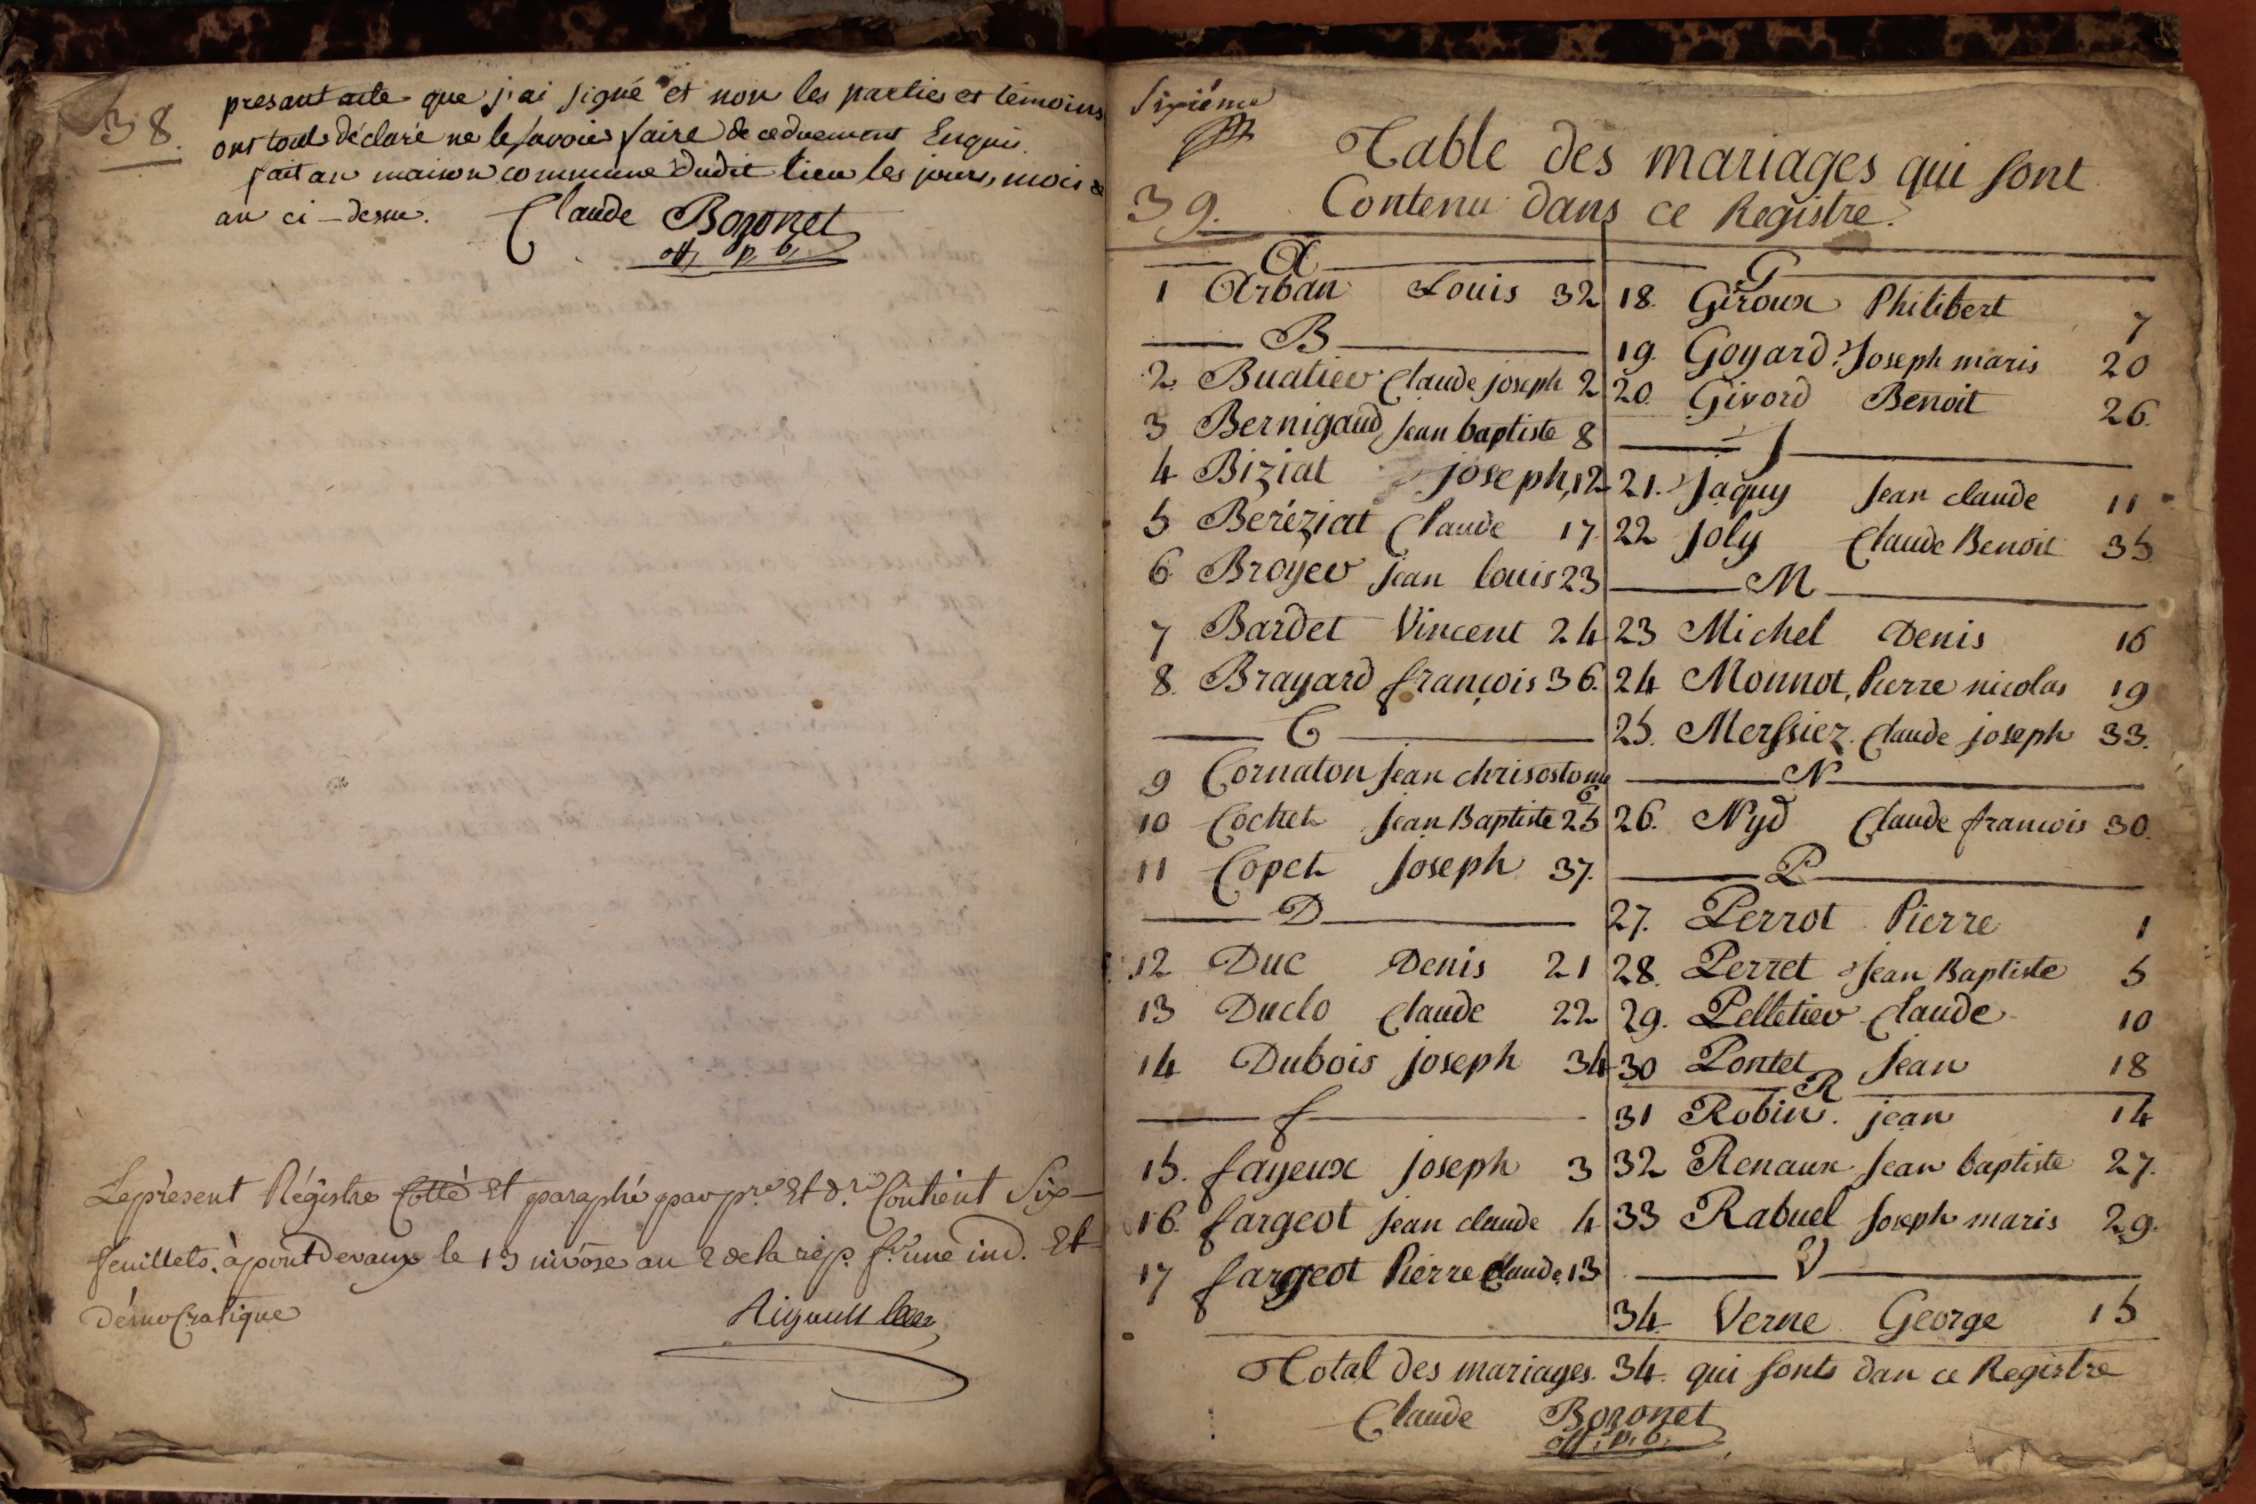 38.
presant acte que j'ai signé et non les parties et témoins
ont touts déclaré ne le savoir faire de ce duement Enquis.
fait an maison commune dudit lieu les jours, mois &
an ci-desur. Claude Bozonet
off. p. b.
Le présent Régistre Cotté Et paraphé par pre Et dr Contient Six
feuillets. à pont Devaux le 13 nivôse an 2 de la rép. fse une ind. Et
Démocratique
Sixiéme
39.
Table des mariages qui sont
Contenu dans ce Registre.
A
1 Arban Louis 32
B
2 Buatier Claude joseph 2
3 Bernigaud Jean baptiste 8
4 Biziat joseph, 12
5 Beréziat Claude 17
6 Broyer jean louis 23
7 Bardet Vincent 24
8. Brayard françois 36.
C
9 Cornaton Jean chrisostome
6
10 Cochet Jean Baptiste 25
11 Copet Joseph 37.
D
12 Duc Denis 21
13 Duclo Claude 22
14 Dubois joseph 34
f
15. fayeux joseph 3
16. fargeot jean claude 4
17 fargeot Pierre Claude, 13
G
18. Giroux Philibert 7
19. Goyard Joseph maris 20
20. Givord Benoit 26.
J
21. Jaquy Jean claude 11
22 Joly Claude Benoit 35
M
23 Michel Denis 16
24 Monnot, Pierre nicolas 19
25. Merssiez Claude joseph 33.
N
26. Nyd Claude francois 30.
P
27. Perrot Pierre 1
28. Perret Jean Baptiste 5
29. Pelletier Claude 10
30 Pontet Jean 18
R
31 Robin. jean 14
32 Renaux Jean baptiste 27.
33 Rabuel Joseph maris 29.
V
34. Verne George 15
Total des mariages. 34. qui sonts dan ce Registre
Claude Bozonet
off. p. b.